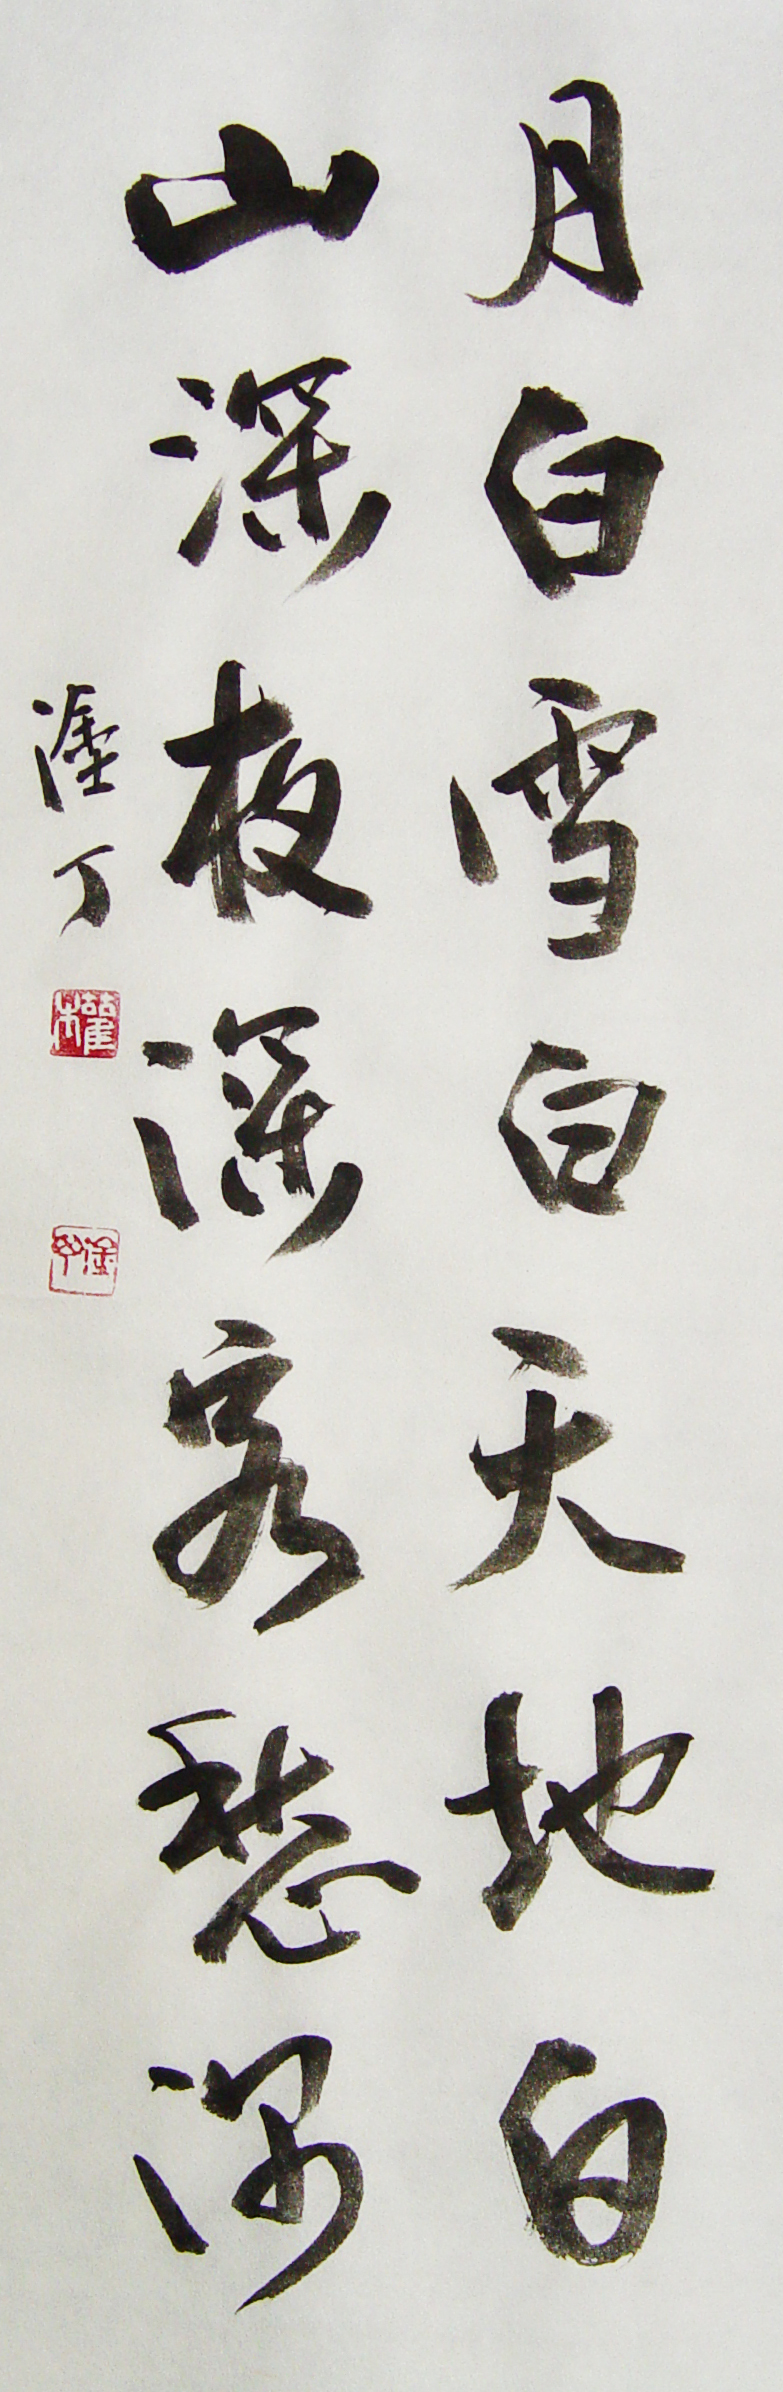 月白雪白天地白
山深夜深客愁深
塗丁